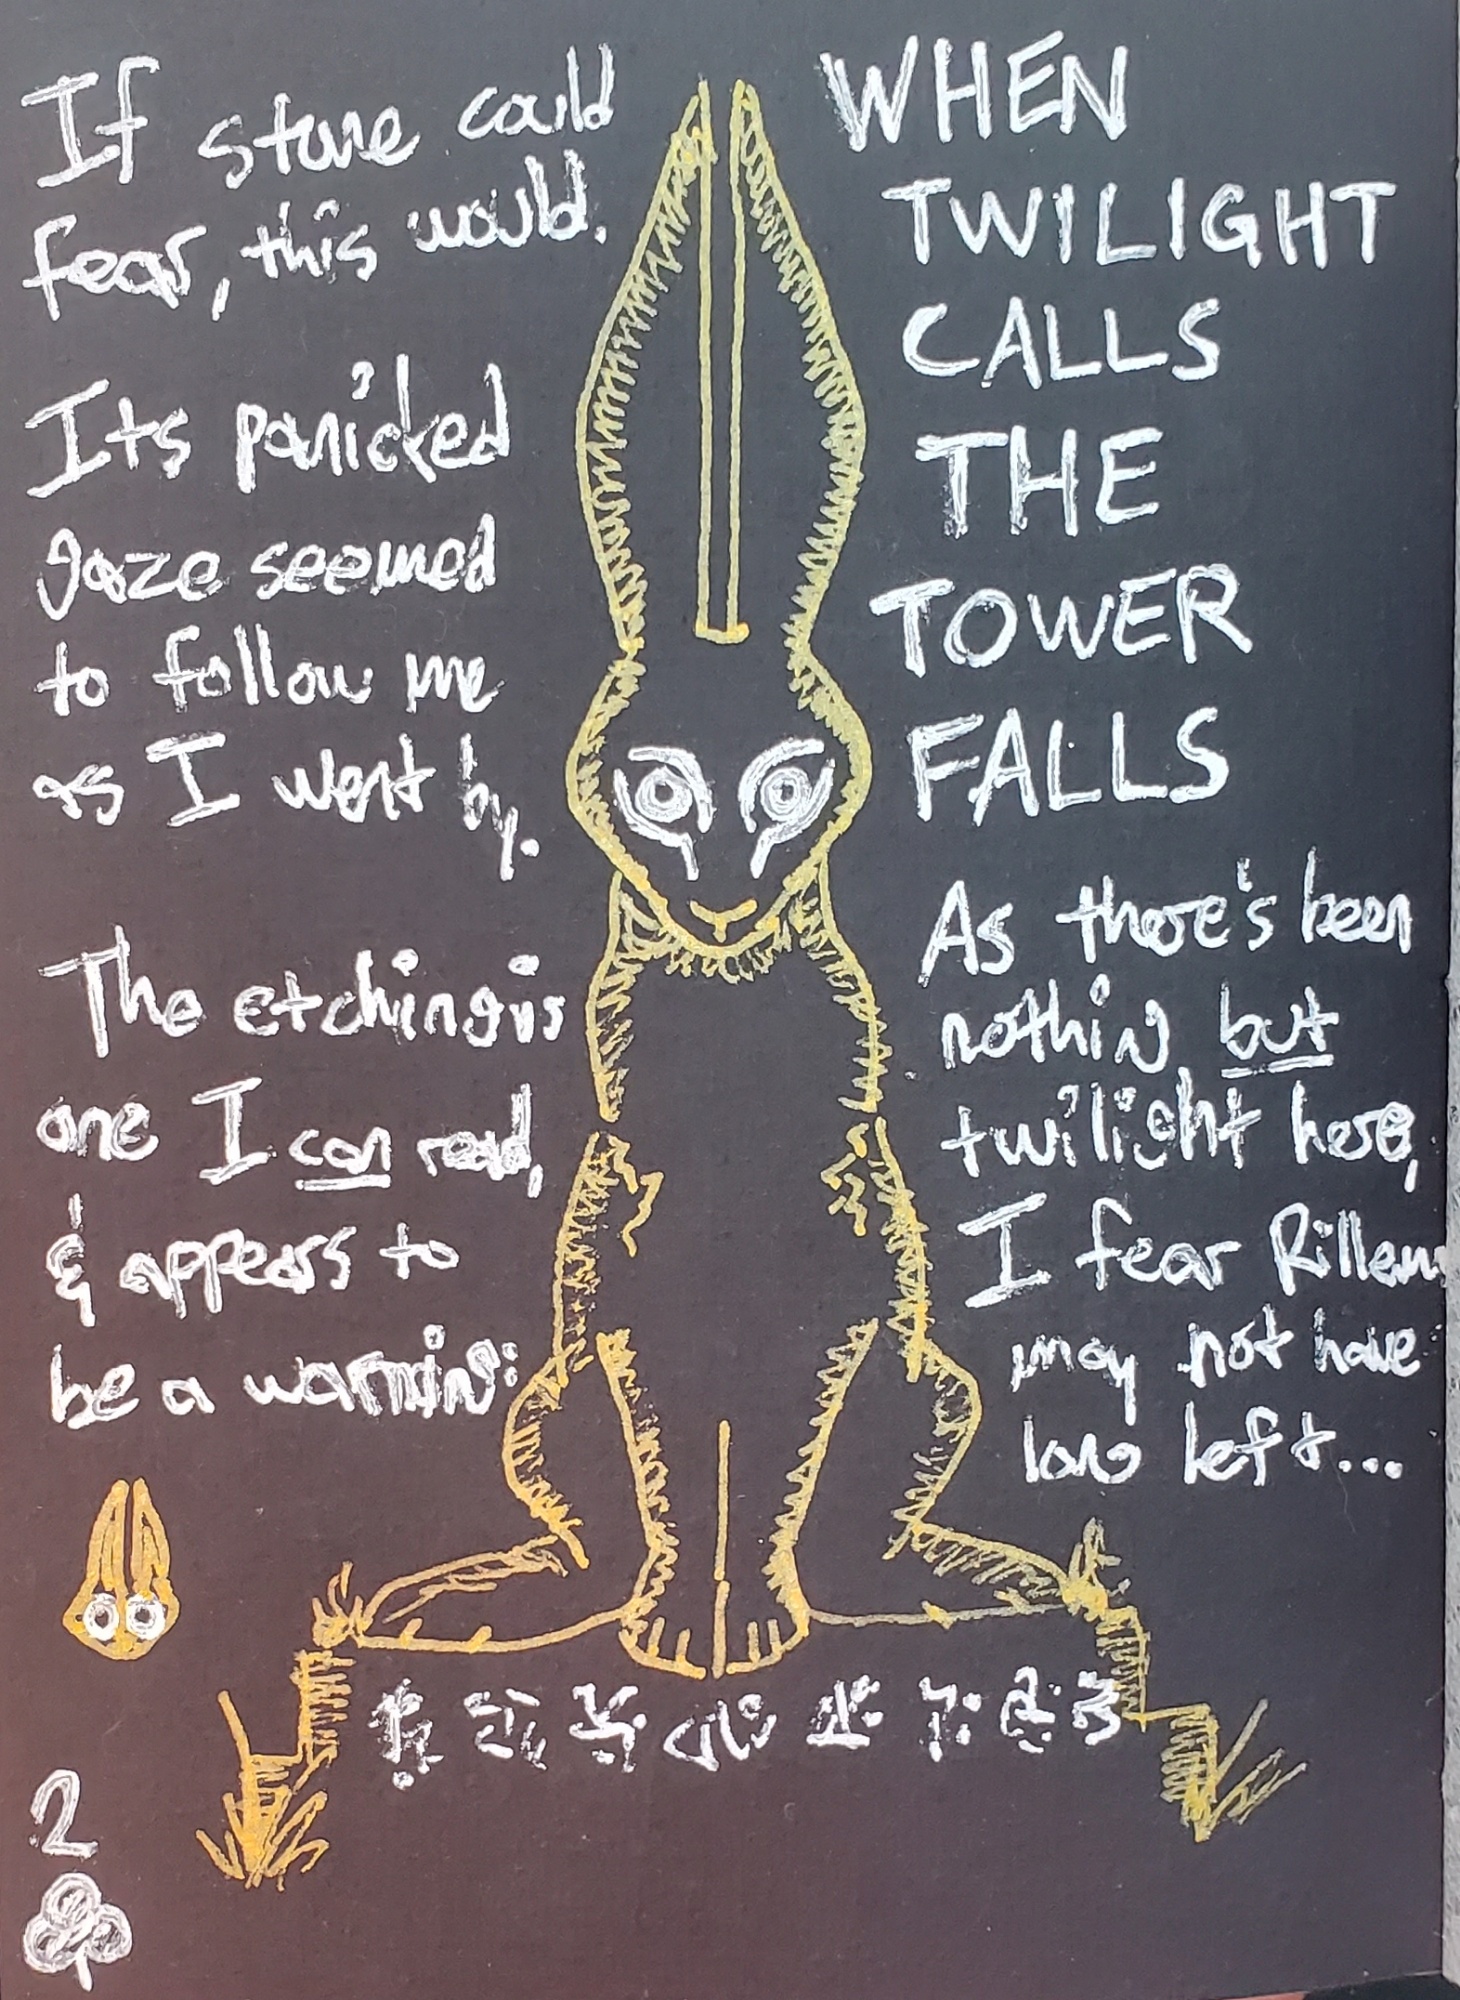 If stone could
fear, this would.
Its panicked
gaze seemed
to follow me
as I went by.
The etching is
one I can read,
& appears to
be a warning:
2
WHEN
TWILIGHT
CALLS
THE
TOWER
FALLS
As there's been
nothing but
twilight here,
I fear Rillem
may not have
long left...